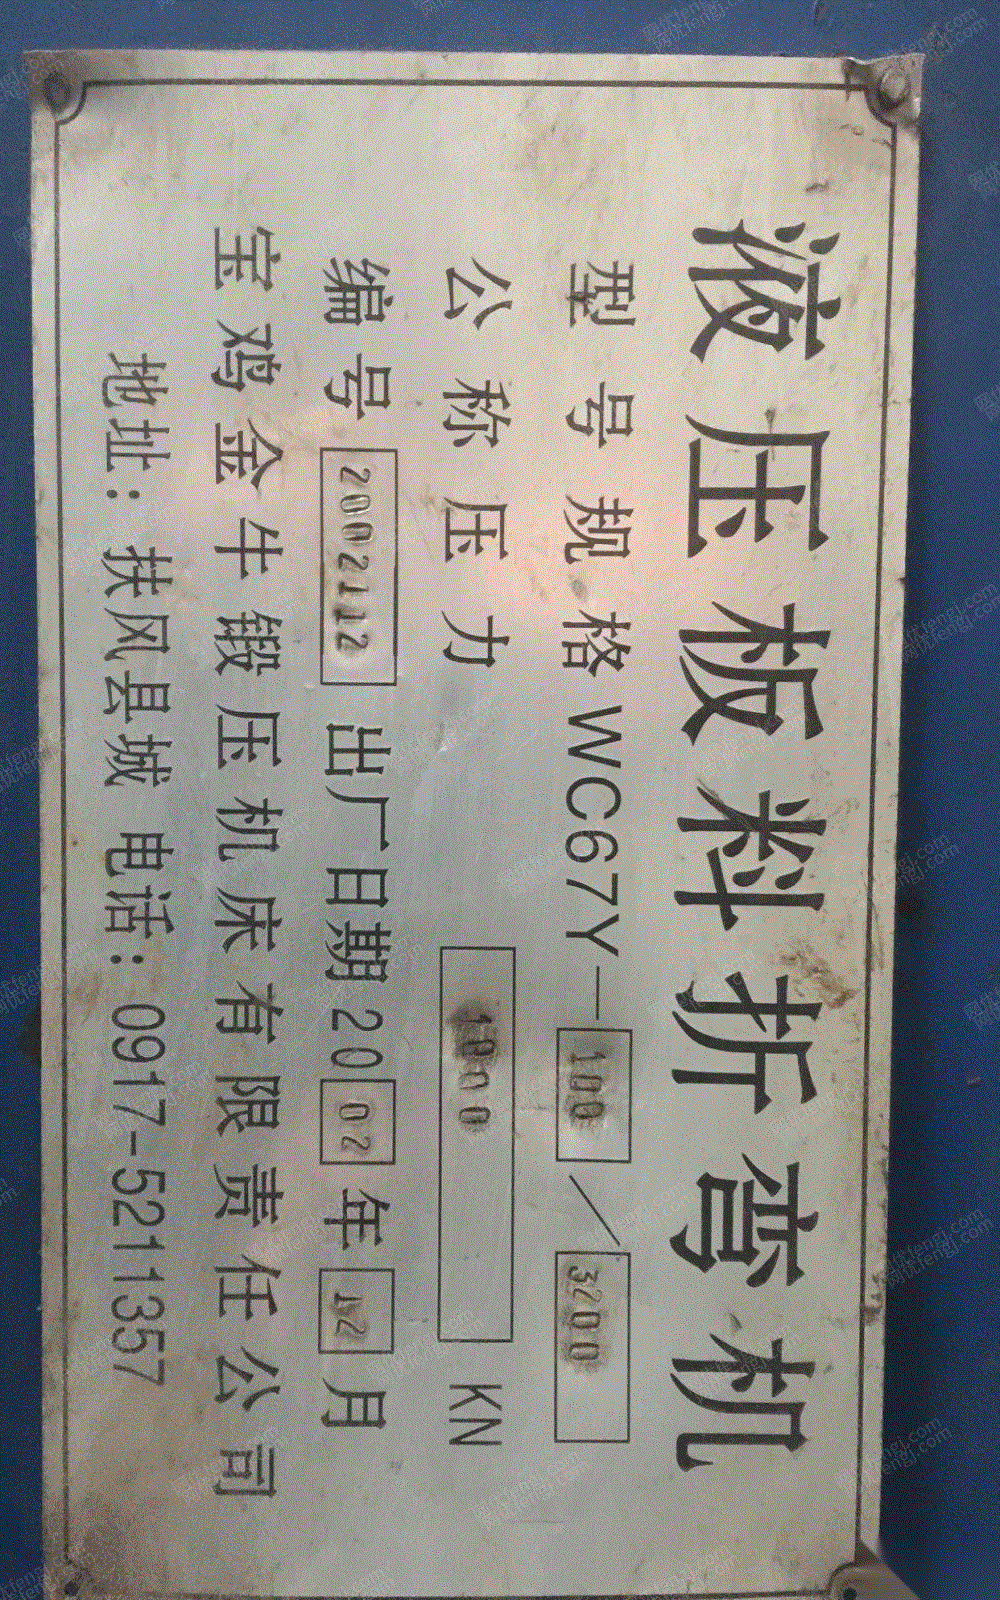 液压板料折弯机
型号规格WC67Y—100/3200
公称压力 1000 KN
编号 2002112 出厂日期2002年12月
宝鸡金牛锻压机床有限责任公司
地址：扶风县城 电话：0917-5211357